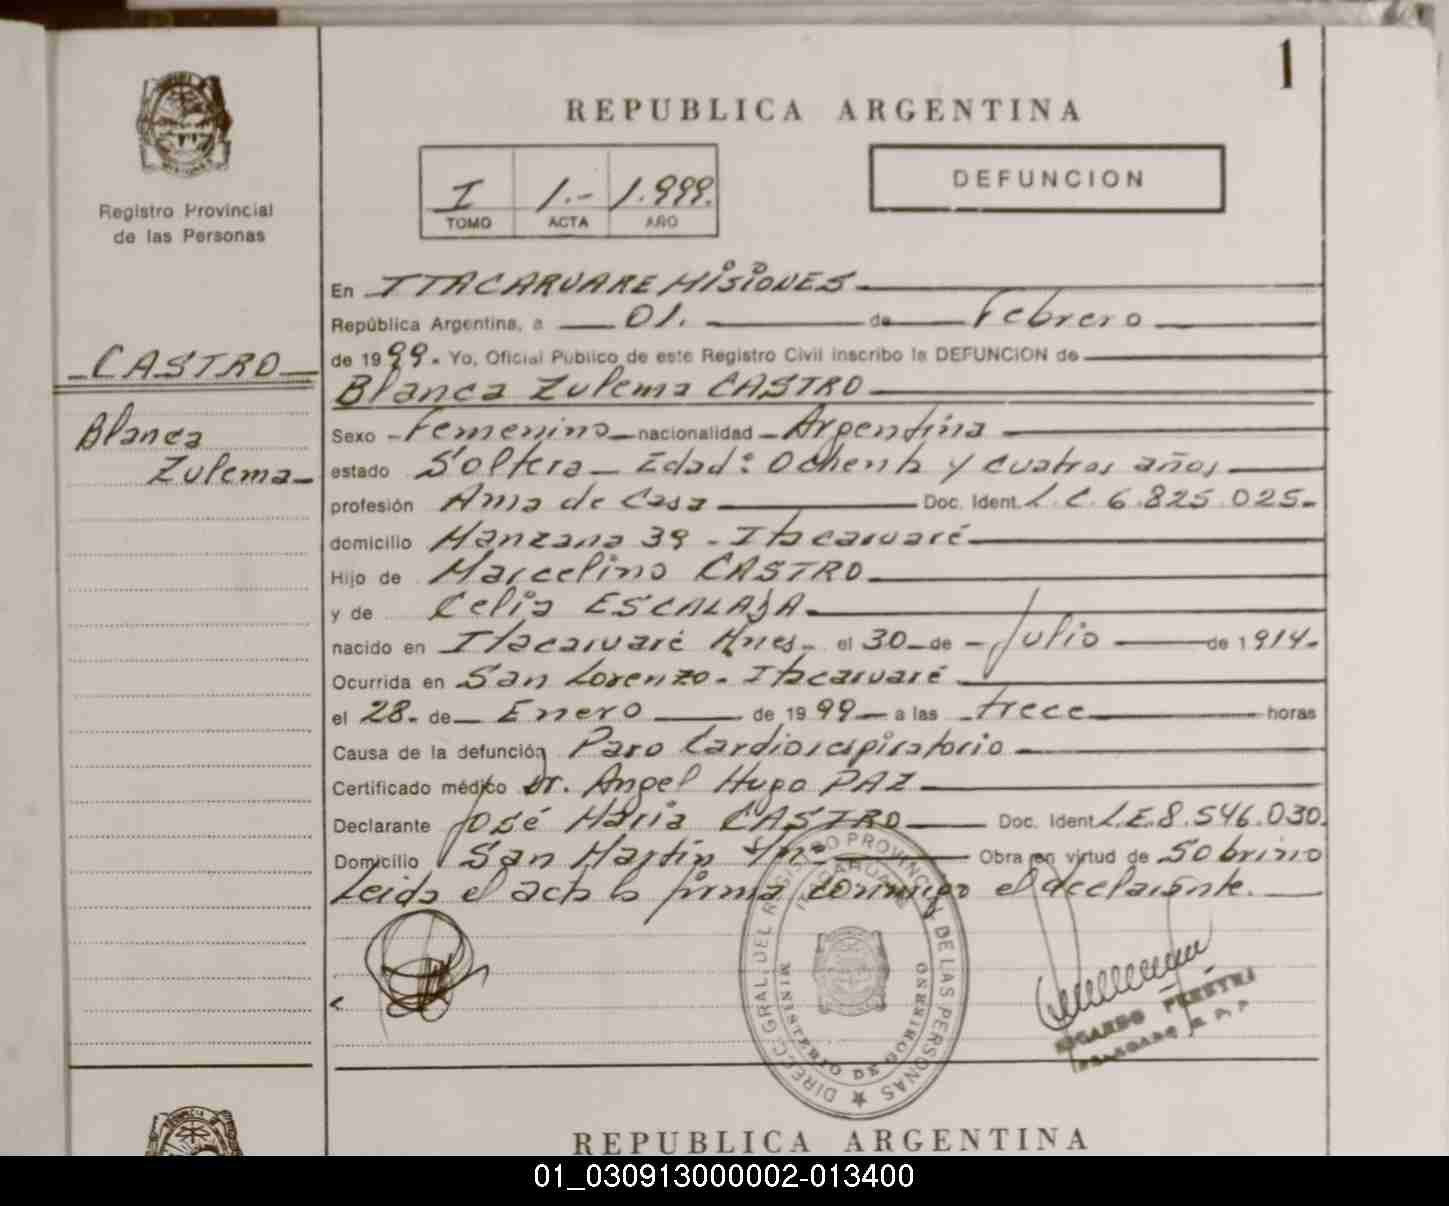 1
REPUBLICA ARGENTINA
I 1.- 1.999.
TOMO ACTA AÑO
DEFUNCION
Registro Provincial
de las Personas
CASTRO
Blanca
Zulema
En ITACARUARE MISIONES
República Argentina, a 01. de Febrero
de 1999. Yo, Oficial Público de este Registro Civil inscribo la DEFUNCION de
Blanca Zulema CASTRO
Sexo Femenino nacionalidad Argentina
estado Soltera - Edad: Ochenta y cuatros años
profesión Ama de Casa Doc. Ident. L.C. 6.825.025-
domicilio Manzana 39 - Itacaruaré
Hijo de Marcelino CASTRO
y de Celia ESCALADA
nacido en Itacaruaré Mnes. el 30 de Julio de 1914-
Ocurrida en San Lorenzo - Itacaruaré
el 28. de Enero de 1999 a las trece horas
Causa de la defunción Paro Cardiorespiratorio
Certificado médico Dr. Angel Hugo PAZ
Declarante José Maria CASTRO Doc. Ident L.E. 8.546.030.
Domicilio San Martin Obra en virtud de Sobrino
Leida el acta la firma conmigo el declarante.
DIREC. GRAL. DEL REGISTRO PROVINCIAL DE LAS PERSONAS
ITACARUARE
MINISTERIO DE GOBIERNO
RICARDO PEREYRA
REPUBLICA ARGENTINA
01_030913000002-013400